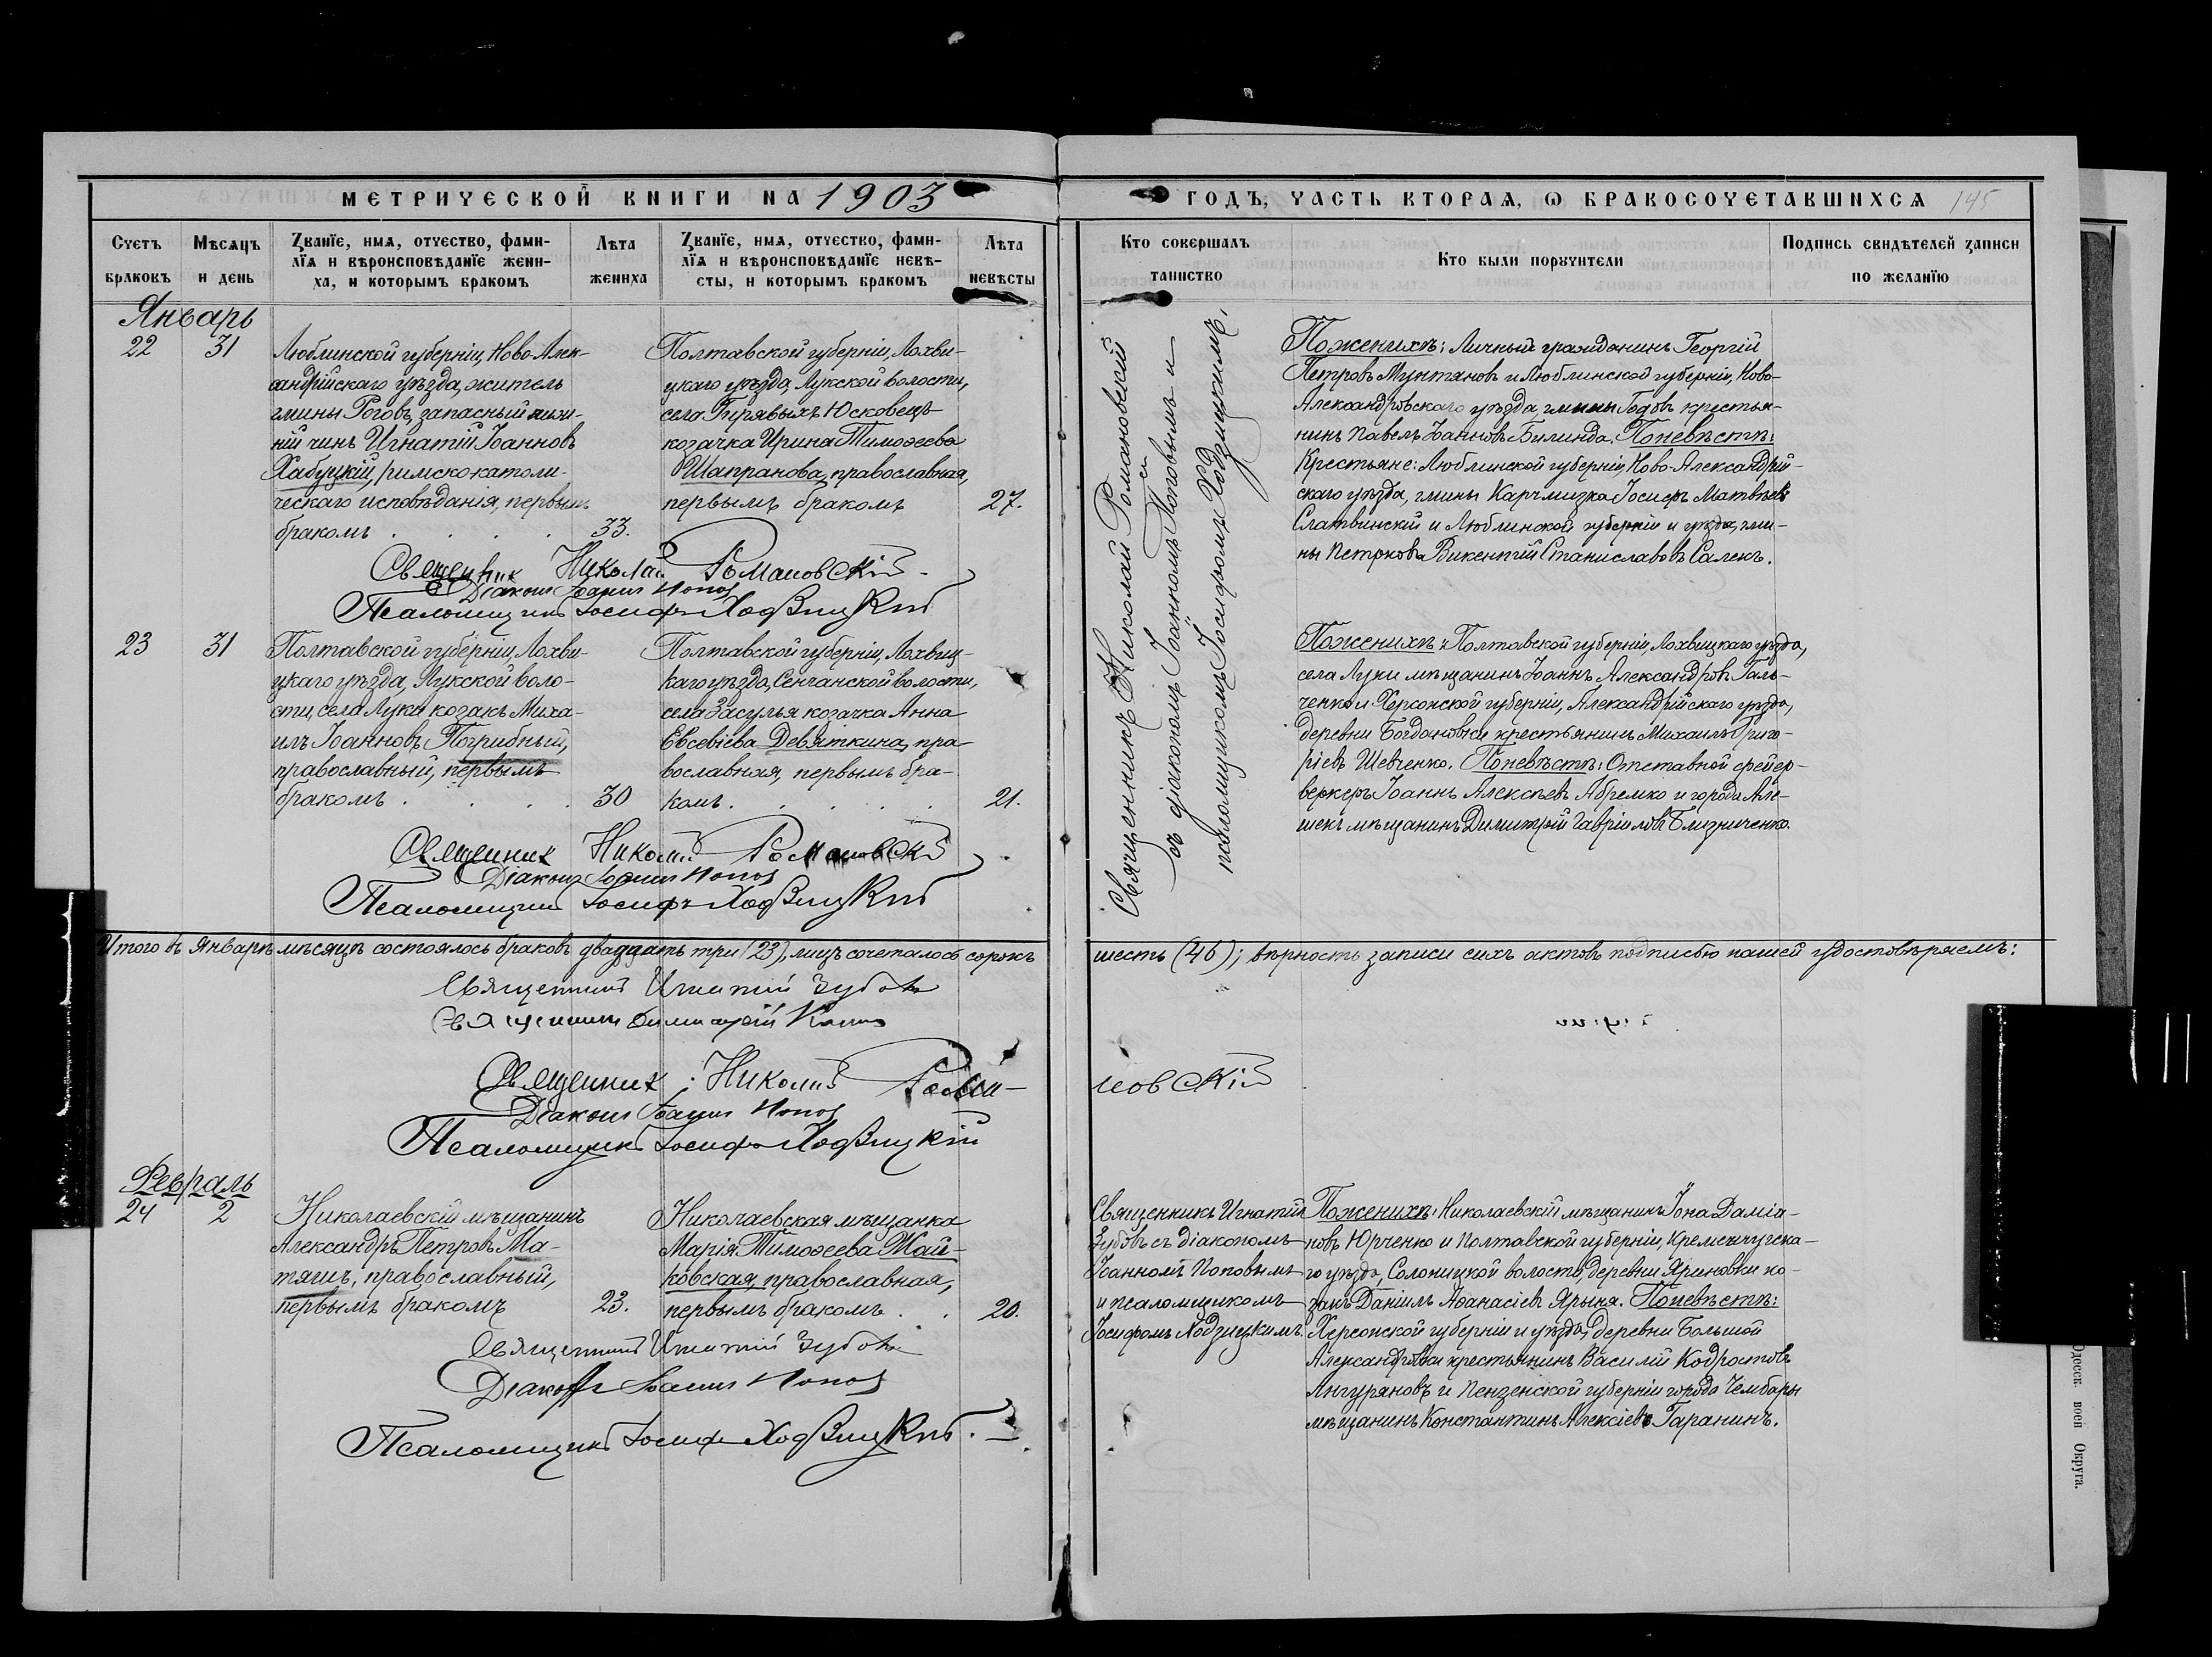 МЕТРИЧЕСКОЙ КНИГИ НА 1903
ГОДЪ, ЧАСТЬ ВТОРАЯ, Ѡ БРАКОСОЧЕТАВШИХСЯ 145
Счетъ браковъ
Мѣсяцъ и день
Званїе, имя, отчество, фами-
лїя и вѣроисповѣданїе жени-
ха, и которымъ бракомъ
Лѣта жениха
Званїе, имя, отчество, фами-
лїя и вѣроисповѣданїе невѣ-
сты, и которымъ бракомъ
Лѣта невѣсты
Кто совершалъ таинство
Кто были поручители
Подпись свидѣтелей записи по желанїю
Январь
22 31
Люблинской губерніи, Ново-Алек-
сандрійскаго уѣзда, житель
гмины Роговъ, запасный ниж-
ній чинъ Игнатій Іоанновъ
Хабуцкій, римско-католи-
ческаго исповѣданія, первымъ
бракомъ . . . . 33.
Полтавской губерніи, Лохви-
цкаго уѣзда, Лукской волости,
села Юсковецъ
козачка Ирина Тимоѳеева
Шапранова, православная,
первымъ бракомъ 27.
Священникъ Николай Романовскій
Діаконъ Іоаннъ Поповъ
Псаломщикъ Іосифъ Ходзицкій
Священникъ Николай Романовскій
съ діакономъ Іоанномъ Поповымъ и
псаломщикомъ Іосифомъ Ходзицкимъ.
По женихѣ: Личный гражданинъ Георгій
Петровъ Мунтяновъ и Люблинской губерніи, Ново-
Александровскаго уѣзда, гмины Годовъ крестья-
нинъ Павелъ Іоанновъ Билинда. По невѣстѣ:
Крестьяне: Люблинской губерніи, Ново-Александрій-
скаго уѣзда, гмины Карчмизка Іосифъ Матвѣевъ
Слатвинскій и Люблинской губерніи и уѣзда, гми-
ны Петрковъ Викентій Станиславовъ Салекъ.
23 31
Полтавской губерніи, Лохви-
цкаго уѣзда, Лукской воло-
сти, села Луки козакъ Миха-
илъ Іоанновъ Погрибный,
православный, первымъ
бракомъ . . . . 30
Полтавской губерніи, Лохвиц-
каго уѣзда, Сенчанской волости,
села Засулья козачка Анна
Евсевіева Девяткина, пра-
вославная, первымъ бра-
комъ . . . . . 21.
Священникъ Николай Романовскій
Діаконъ Іоаннъ Поповъ
Псаломщикъ Іосифъ Ходзицкій
По женихѣ: Полтавской губерніи, Лохвицкаго уѣзда,
села Луки мѣщанинъ Іоаннъ Александровъ Галь-
ченко и Херсонской губерніи, Александрійскаго уѣзда,
деревни Богдановки крестьянинъ Михаилъ Григо-
ріевъ Шевченко. По невѣстѣ: Отставной фейер-
веркеръ Іоаннъ Алексѣевъ Абремко и города Але-
шекъ мѣщанинъ Димитрій Гавріиловъ Близниченко.
Итого въ Январѣ мѣсяцѣ состоялось браковъ двадцать три (23), лицъ сочеталось сорокъ
шесть (46); вѣрность записи сихъ актовъ подписью нашей удостовѣряемъ:
Священникъ Игнатій Зубовъ
Священникъ Димитрій
Священникъ Николай Рома-
новскій
Діаконъ Іоаннъ Поповъ
Псаломщикъ Іосифъ Ходзицкій
Февраль
24 2
Николаевскій мѣщанинъ
Александръ Петровъ Ма-
тяшъ, православный,
первымъ бракомъ 23.
Николаевская мѣщанка
Марія Тимоѳеева Жай-
ковская, православная,
первымъ бракомъ . . 20.
Священникъ Игнатій Зубовъ
Діаконъ Іоаннъ Поповъ
Псаломщикъ Іосифъ Ходзицкій.
Священникъ Игнатій
Зубовъ съ діакономъ
Іоанномъ Поповымъ
и псаломщикомъ
Іосифомъ Ходзицкимъ.
По женихѣ: Николаевскій мѣщанинъ Іона Даміа-
новъ Юрченко и Полтавской губерніи, Кременчугска-
го уѣзда, Солоницкой волости, деревни Яриновки ко-
закъ Даніилъ Аѳанасіевъ Ярыня. По невѣстѣ:
Херсонской губерніи и уѣзда, деревни Большой
Александровки крестьянинъ Василій Кодратовъ
Ангуряновъ и Пензенской губерніи города Чембары
мѣщанинъ Константинъ Алексіевъ Гаранинъ.
Одесск. воен Округа.